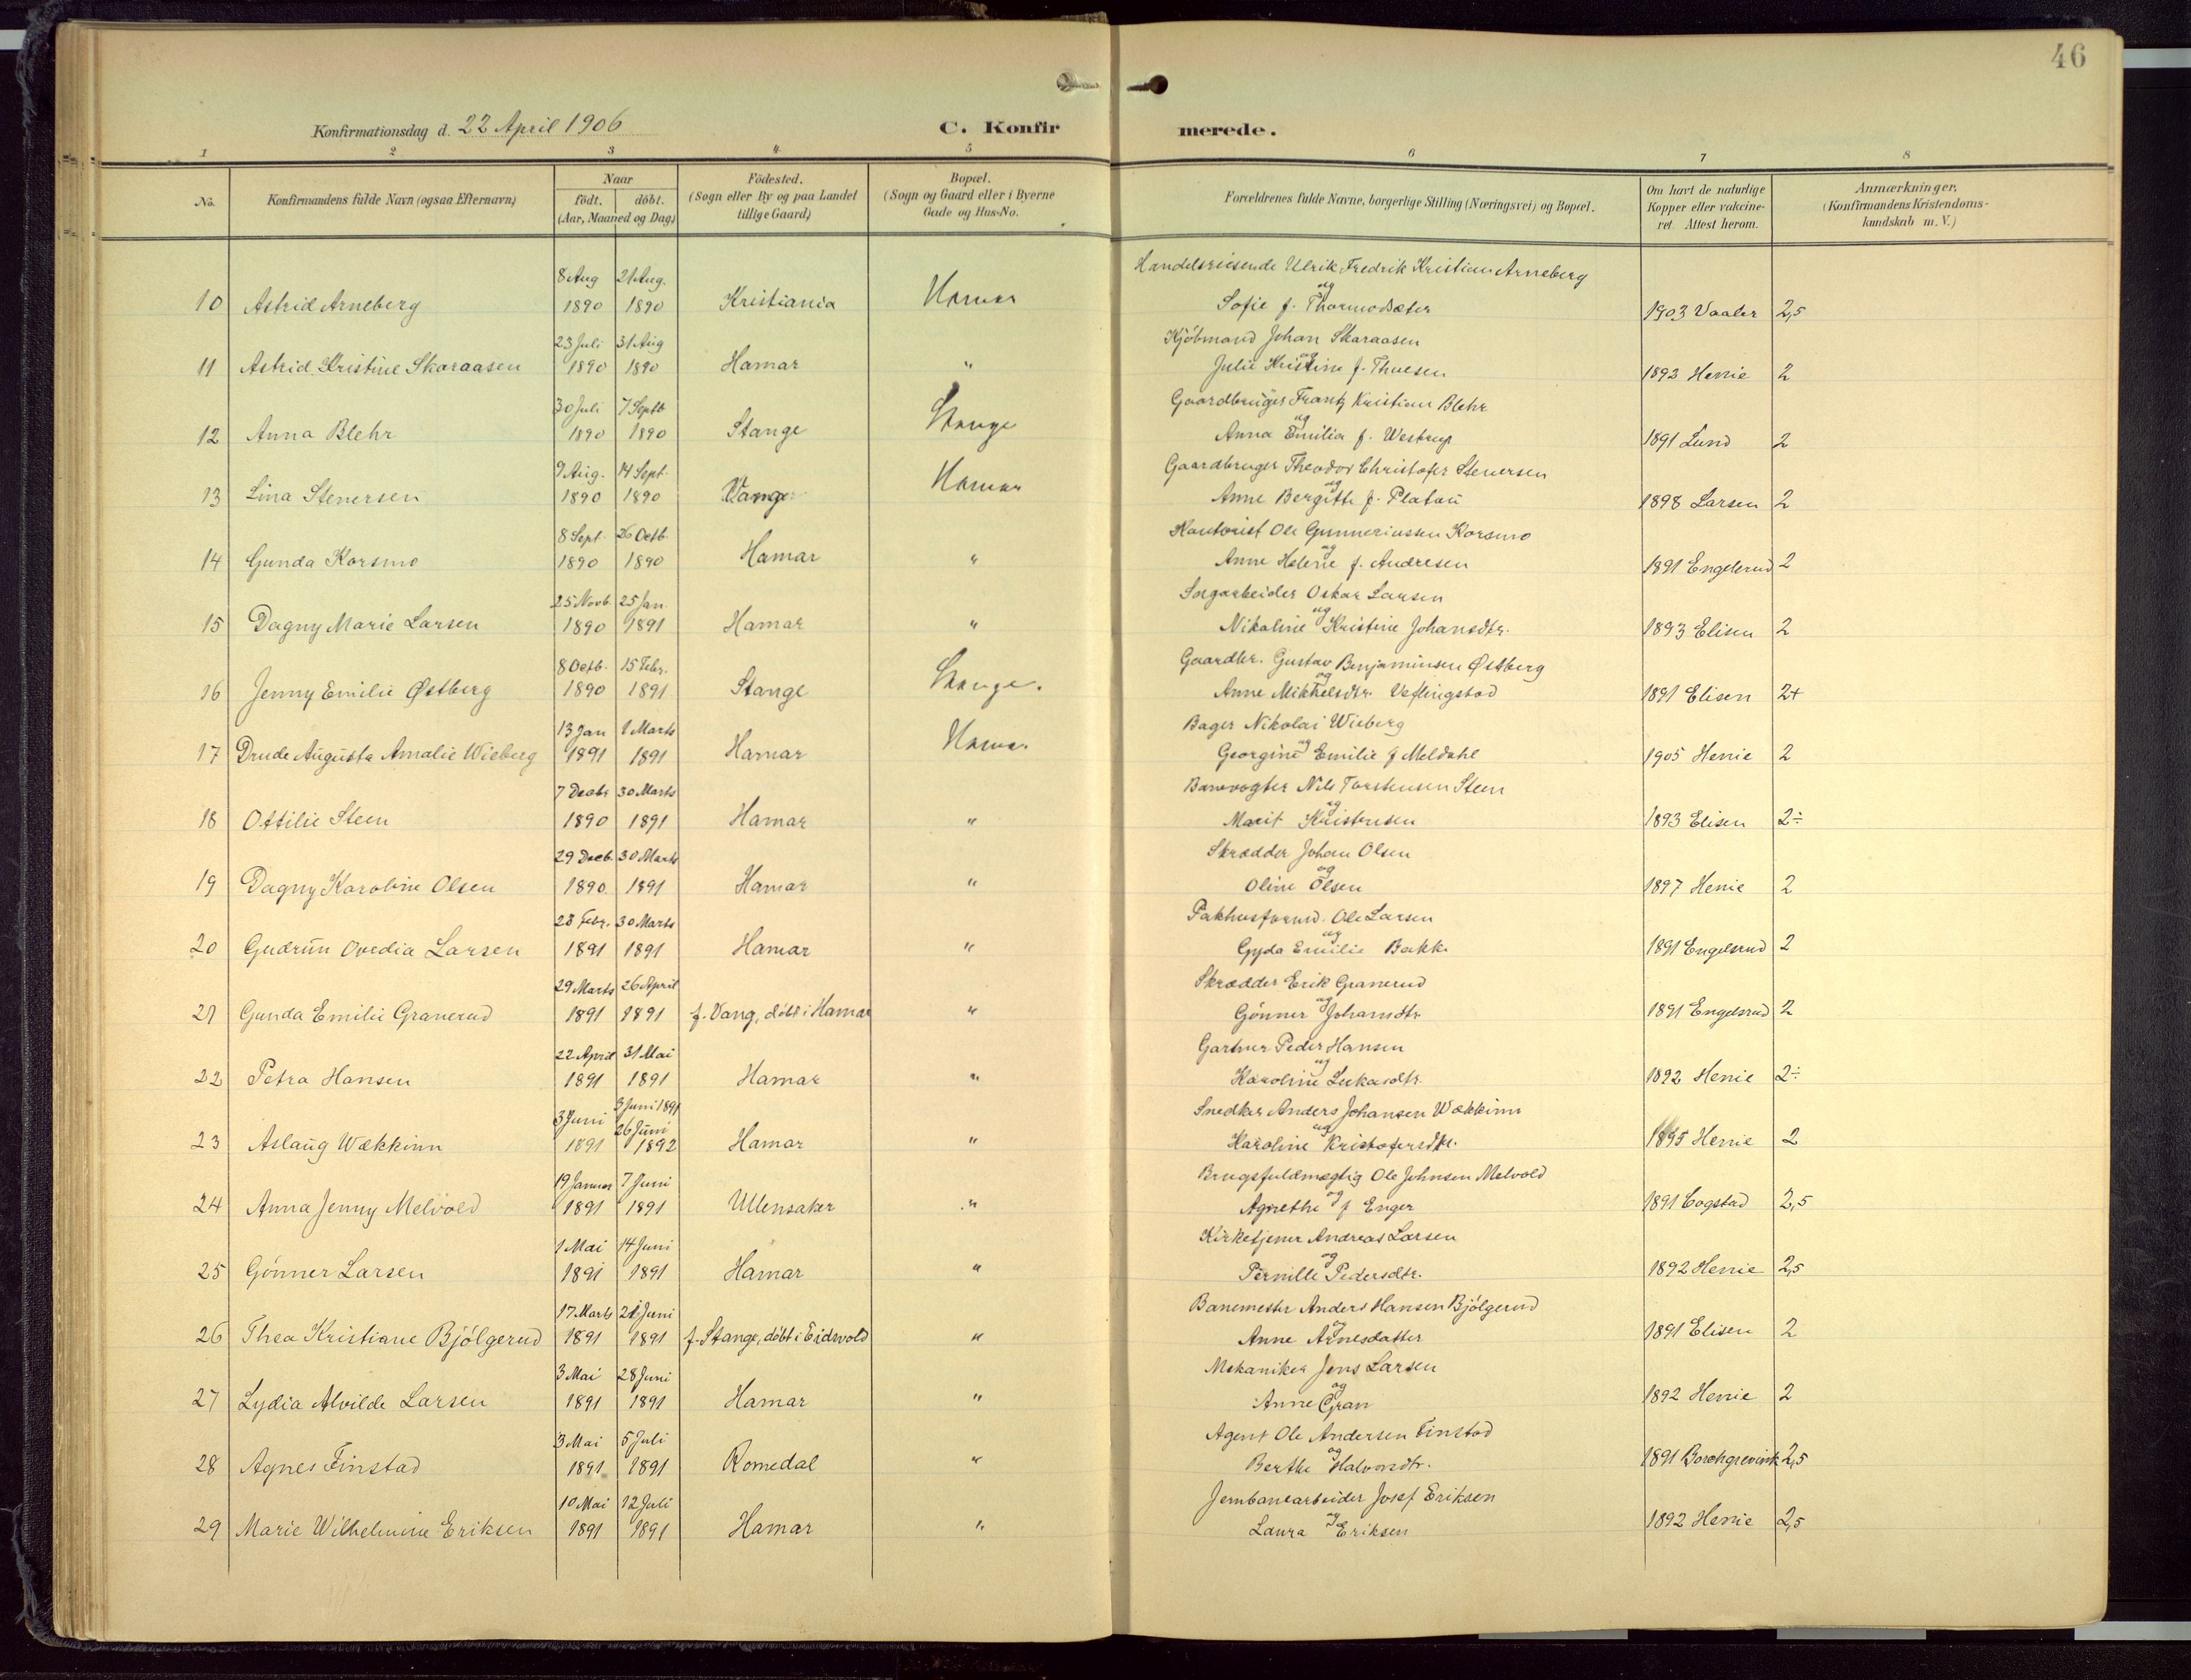 46
Konfirmationsdag d. 22 April 1906 C. Konfirmerede.
1 2 3 4 5 6 7 8
No. Konfirmandens fulde Navn (ogsaa Efternavn) Naar födt. döbt. (Aar, Maaned og Dag) Födested. (Sogn eller By og paa Landet tillige Gaard) Bopæl. (Sogn og Gaard eller i Byerne Gade og Hus-No. Forældrenes fulde Navne, borgerlige Stilling (Næringsvei) og Bopæl. Om havt de naturlige Kopper eller vakcineret. Attest herom. Anmærkninger. (Konfirmandens Kristendomskundskab m. V.)
8 Aug 21 Aug. Handelsreisende Ulrik Fredrik Kristian Arneberg
10 Astrid Arneberg 1890 1890 Kristiania Hamar og Sofie f. Thormodsæter 1903 Vaaler 2,5
23 Juli 31 Aug Kjöbmand Johan Skaraasen
11 Astrid Kristine Skaraasen 1890 1890 Hamar " og Julie Kristine f. Thuesen 1893 Henie 2
30 Juli 7 Septb Gaardbruger Frantz Kristian Blehr
12 Anna Blehr 1890 1890 Stange Stange og Anna Emilia f. Westrup 1891 Lund 2
9 Aug. 14 Sept. Gaardbruger Theodor Christofer Stenersen
13 Lina Stenersen 1890 1890 Vang Hamar og Anne Bergitte f. Platou 1898 Larsen 2
8 Sept. 26 Octb. Kontorist Ole Gunneriussen Korsmo
14 Gunda Korsmo 1890 1890 Hamar " og Anne Helene f. Andresen 1891 Engelsrud 2
25 Novb. 25 Jan. Sagarbeider Oskar Larsen
15 Dagny Marie Larsen 1890 1891 Hamar " og Nikoline Kristine Johansdtr. 1893 Elisen 2
8 Octb. 15 Febr. Gaardbr. Gustav Benjaminsen Østberg
16 Jenny Emilie Østberg 1890 1891 Stange Stange. og Anne Mikkelsdtr. Veflingstad 1891 Elisen 2+
13 Jan 1 Marts Bager Nikolai Wieberg
17 Drude Augusta Amalie Wieberg 1891 1891 Hamar Hamar og Georgine Emilie f Meldahl 1905 Henie 2
7 Decbr 30 Marts Banevogter Nils Torstensen Steen
18 Ottilie Steen 1890 1891 Hamar " og Marit Kristensen 1893 Elisen 2÷
29 Decb. 30 Marts Skrædder Johan Olsen
19 Dagny Karoline Olsen 1890. 1891 Hamar " og Oline Olsen 1897 Henie 2
28 Febr. 30 Marts Pakhusformd. Ole Larsen
20 Gudrun Ovedia Larsen 1891 1891 Hamar " og Gyda Emilie Bakke 1891 Engelsrud 2
29 Marts 26 April Skrædder Erik Granerud
21 Gunda Emilie Granerud 1891 1891 f. Vang, döbt i Hamar " og Gönner Johansdtr 1891 Engelsrud 2
22 April 31 Mai Gartner Peder Hansen
22 Petra Hansen 1891 1891 Hamar " og Karoline Lukasdtr. 1892 Henie 2÷
3 Juni 3 Juni 1891 Snedker Anders Johansen Wækkinn
23 Aslaug Wækkinn 1891 26 Juni 1892 Hamar " og Karoline Kristofersdtr. 1895 Henie 2
19 Januar 7 Juni Brugsfuldmægtig Ole Johnsen Melvold
24 Anna Jenny Melvold 1891 1891 Ullensaker " og Agnethe f Enger 1891 Cogstad 2,5
1 Mai 14 Juni Kirketjener Andreas Larsen
25 Gönner Larsen 1891 1891 Hamar " og Pernille Pedersdtr. 1892 Henie 2,5
17 Marts 21 Juni Banemester Anders Hansen Bjölgerud
26 Thea Kristiane Bjölgerud 1891 1891 f. Stange, döbt i Eidsvold " og Anne Arnesdatter 1891 Elisen 2
3 Mai 28 Juni Mekaniker Jens Larsen
27 Lydia Alvilde Larsen 1891 1891 Hamar " og Anne Gran 1892 Henie 2
3 Mai 5 Juli Agent Ole Andersen Finstad
28 Agnes Finstad 1891 1891 Romedal " og Berthe Halvorsdtr. 1891 Borchgrevink 2,5
10 Mai 12 Juli Jernbanearbeider Josef Eriksen
29 Marie Wilhelmine Eriksen 1891 1891 Hamar " og Laura Eriksen 1892 Henie 2,5